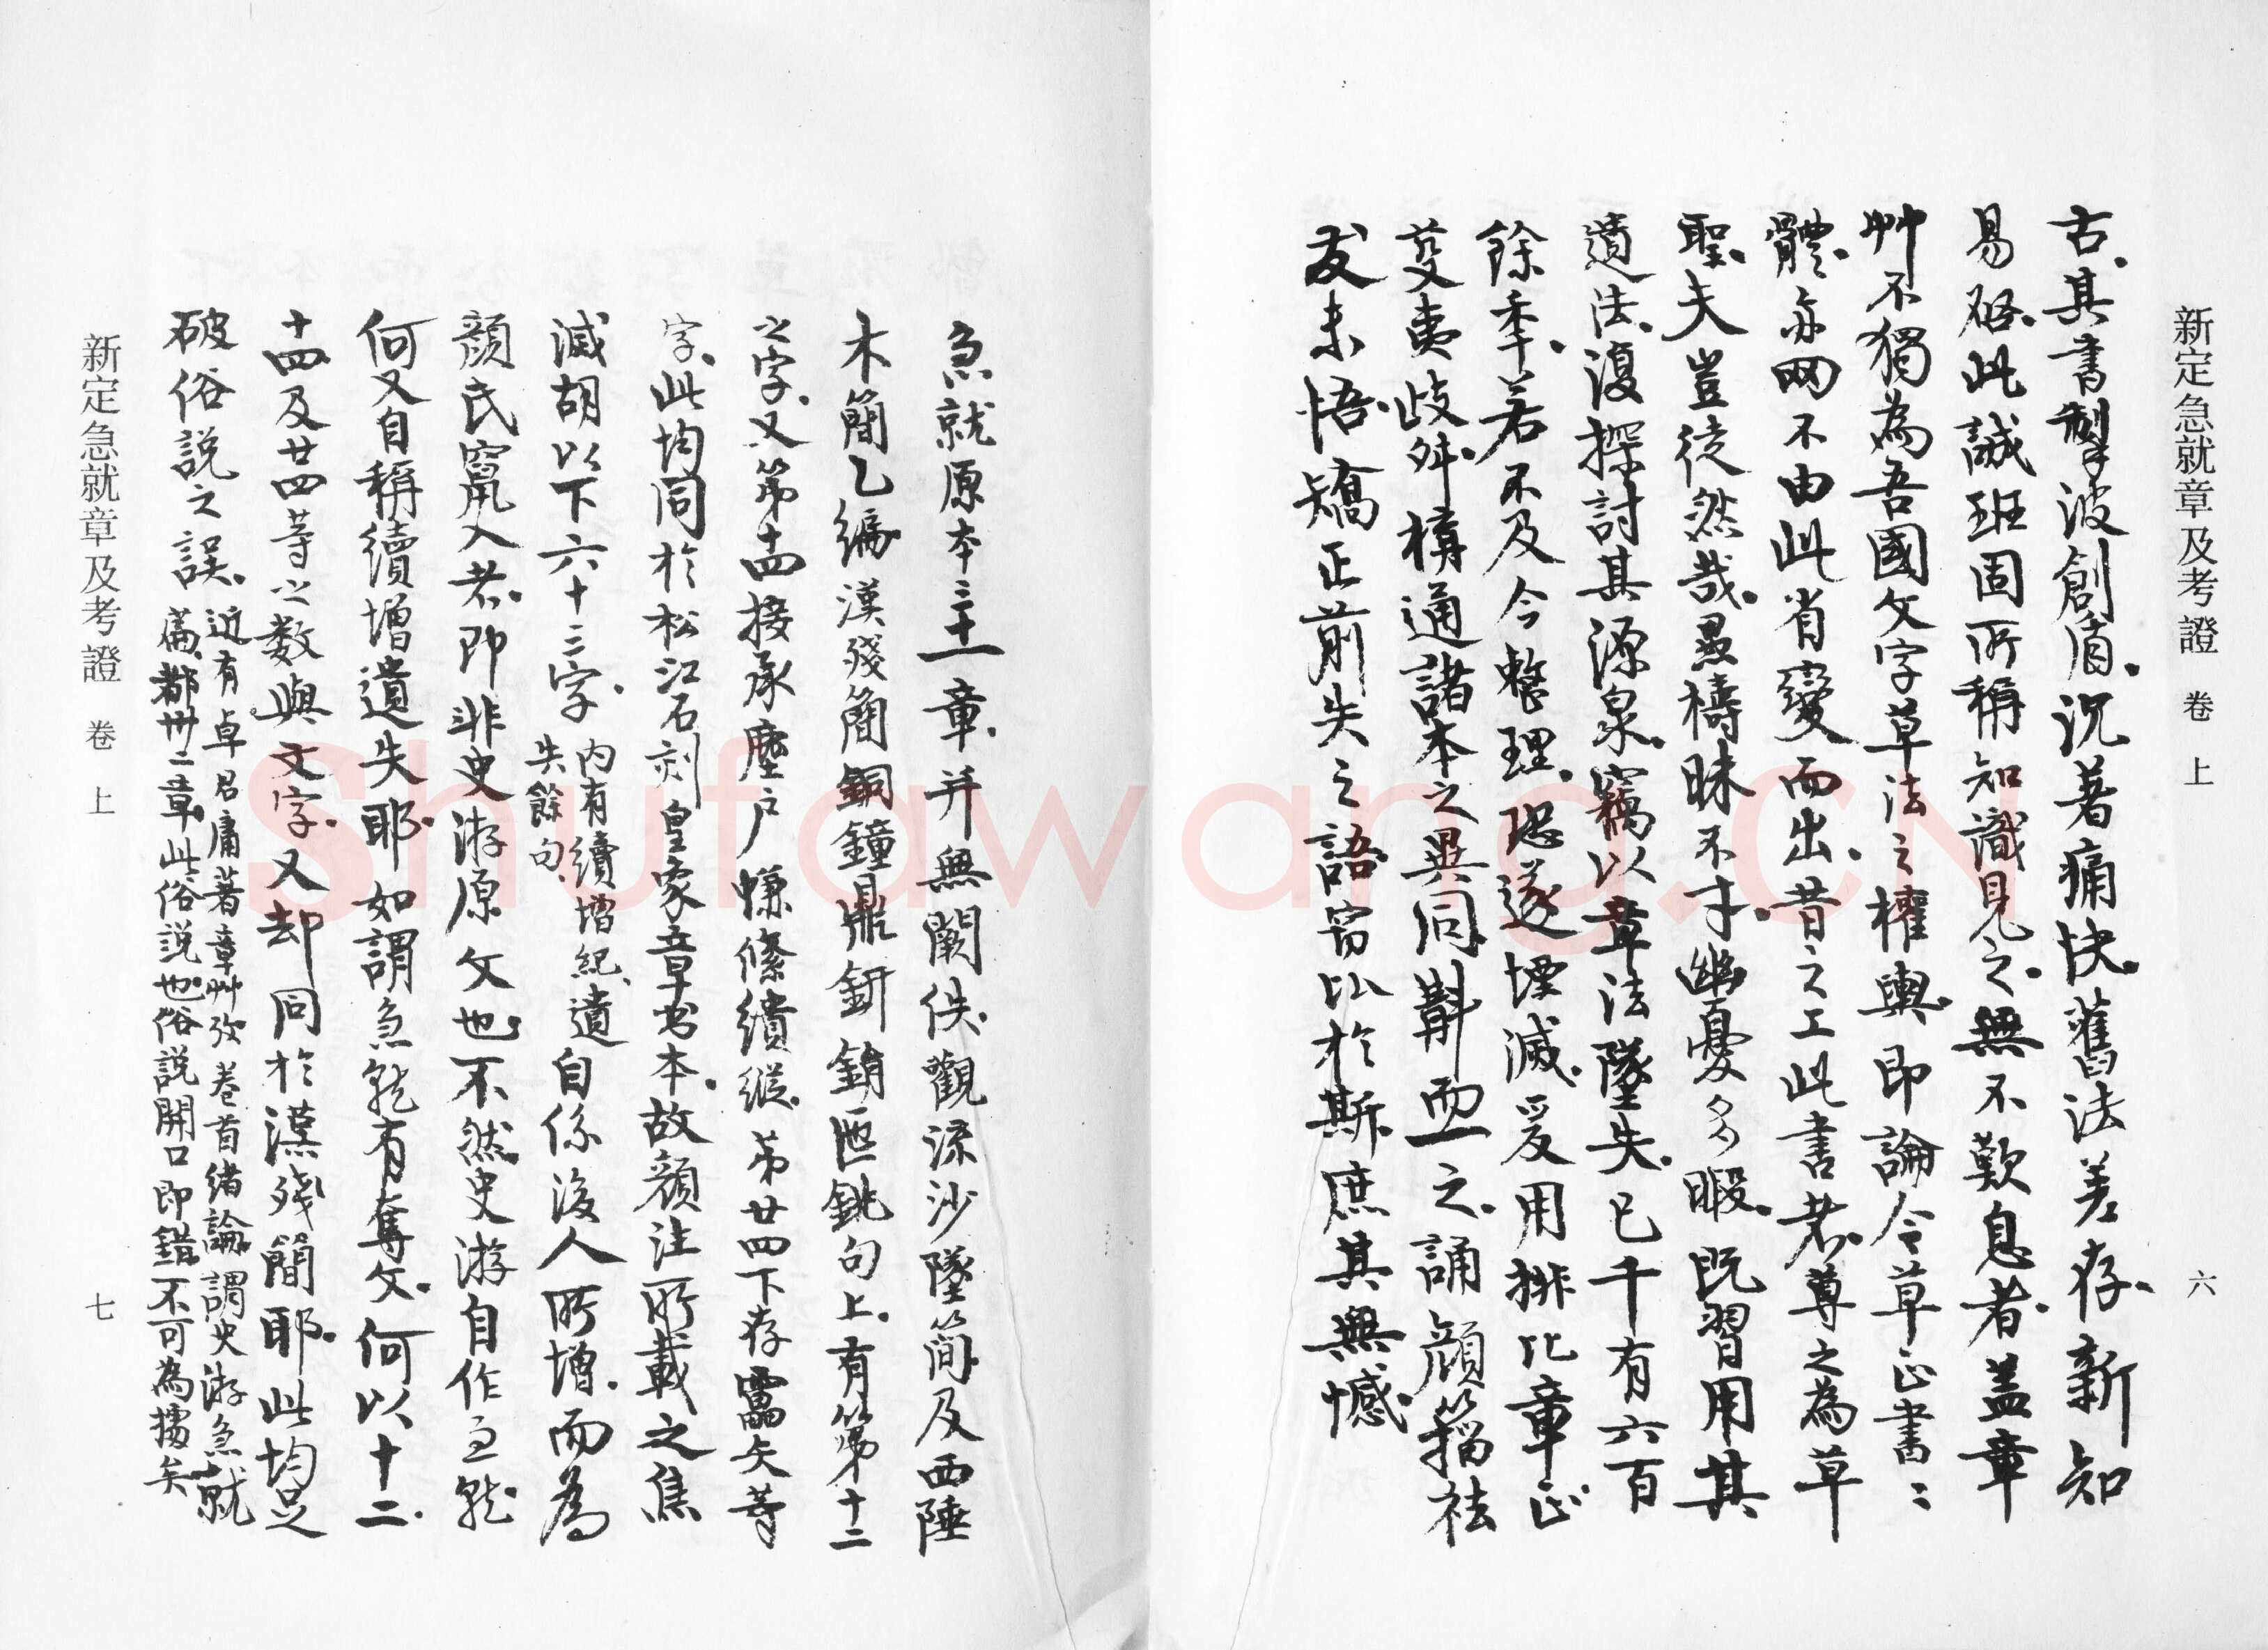 新定急就章及考證 卷上 六
古。其書掣波創眉。沉著痛快。舊法差存。新知
易啓。此誠班固所稱知識見之。無不歎息者。蓋章
艸不獨為吾國文字草法之權輿。即論今草正書二
體。亦罔不由此省變而出。昔之工此書者。尊之為草
聖。夫豈徒然哉。愚檮昧不才。幽憂多暇。既習用其
遺法。復探討其源泉。竊以章法墜失。已千有六百
餘年。若不及今整理。恐遂堙滅。爰用排比章正。
芟夷歧舛。構通諸本之異同。斠而一之。誦顏籀祛
发未悟。矯正前失之語。窃比於斯。庶其無憾。
急就原本三十一章。并無闕佚。觀流沙墜簡。及西陲
木簡乙編。漢殘簡銅鐘鼎鈃鋗匜銚句上。有第十二
之字。又第十四接承塵户㡘絛繢縱。第廿四下存雷矢等
字。此均同於松江石刻皇象章书本。故顏注所載之焦
滅胡以下六十三字。
内有續增紀。遺
失餘句。
自係後人所增。而為
顏氏竄入者。即非史游原文也。不然。史游自作急就
何又自稱續增遺失耶。如謂急就有奪文。何以十二。
十四及廿四等之数與文字。又却同於漢殘簡耶。此均足
破俗說之誤。
近有卓君庸著章艸攷。卷首緒論。謂史游急就
篇。都卅二章。此俗說也。俗說開口即錯。不可為據矣
新定急就章及考證 卷上 七
Shufawang.CN